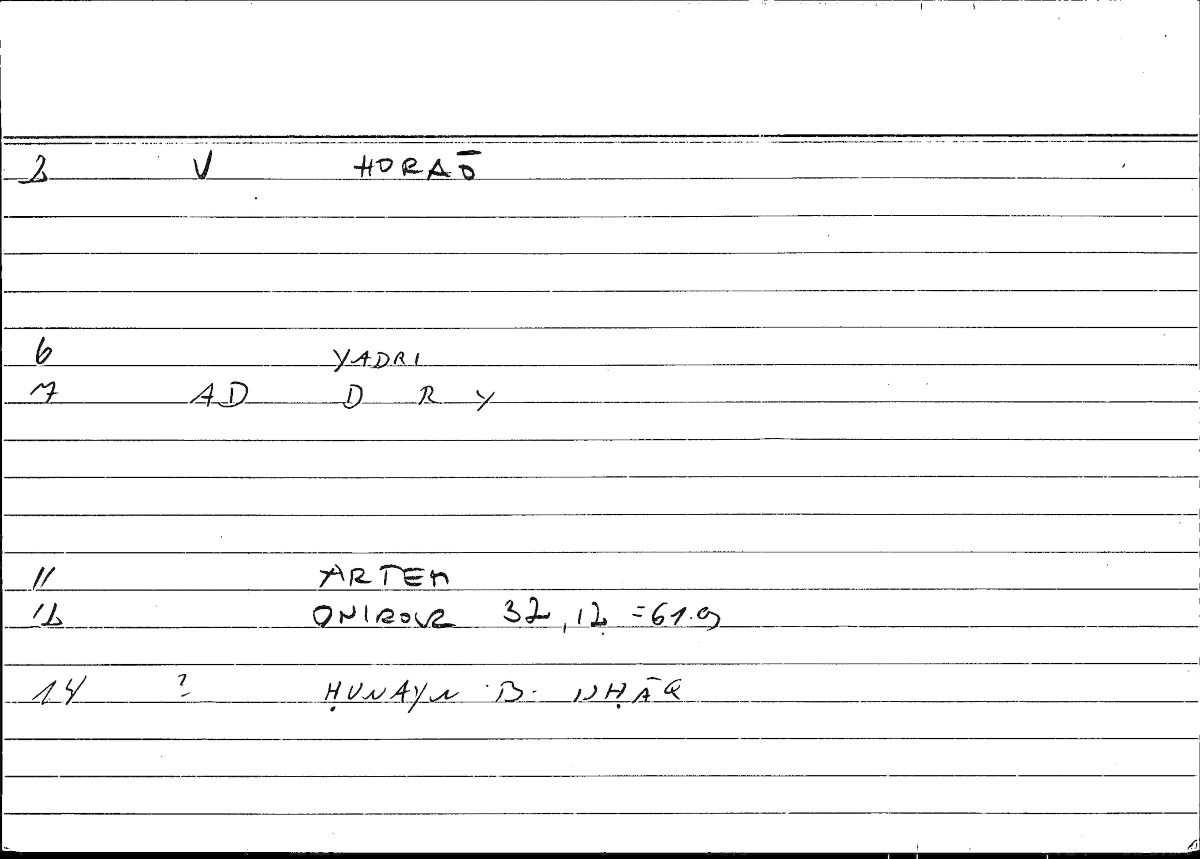 2 V HORAŌ
6 YADRI
7 AD D R Y
11 ARTEM
12 ONIROCR 32,12 = 61.9
14 ? ḤUNAYN B. ISḤĀQ